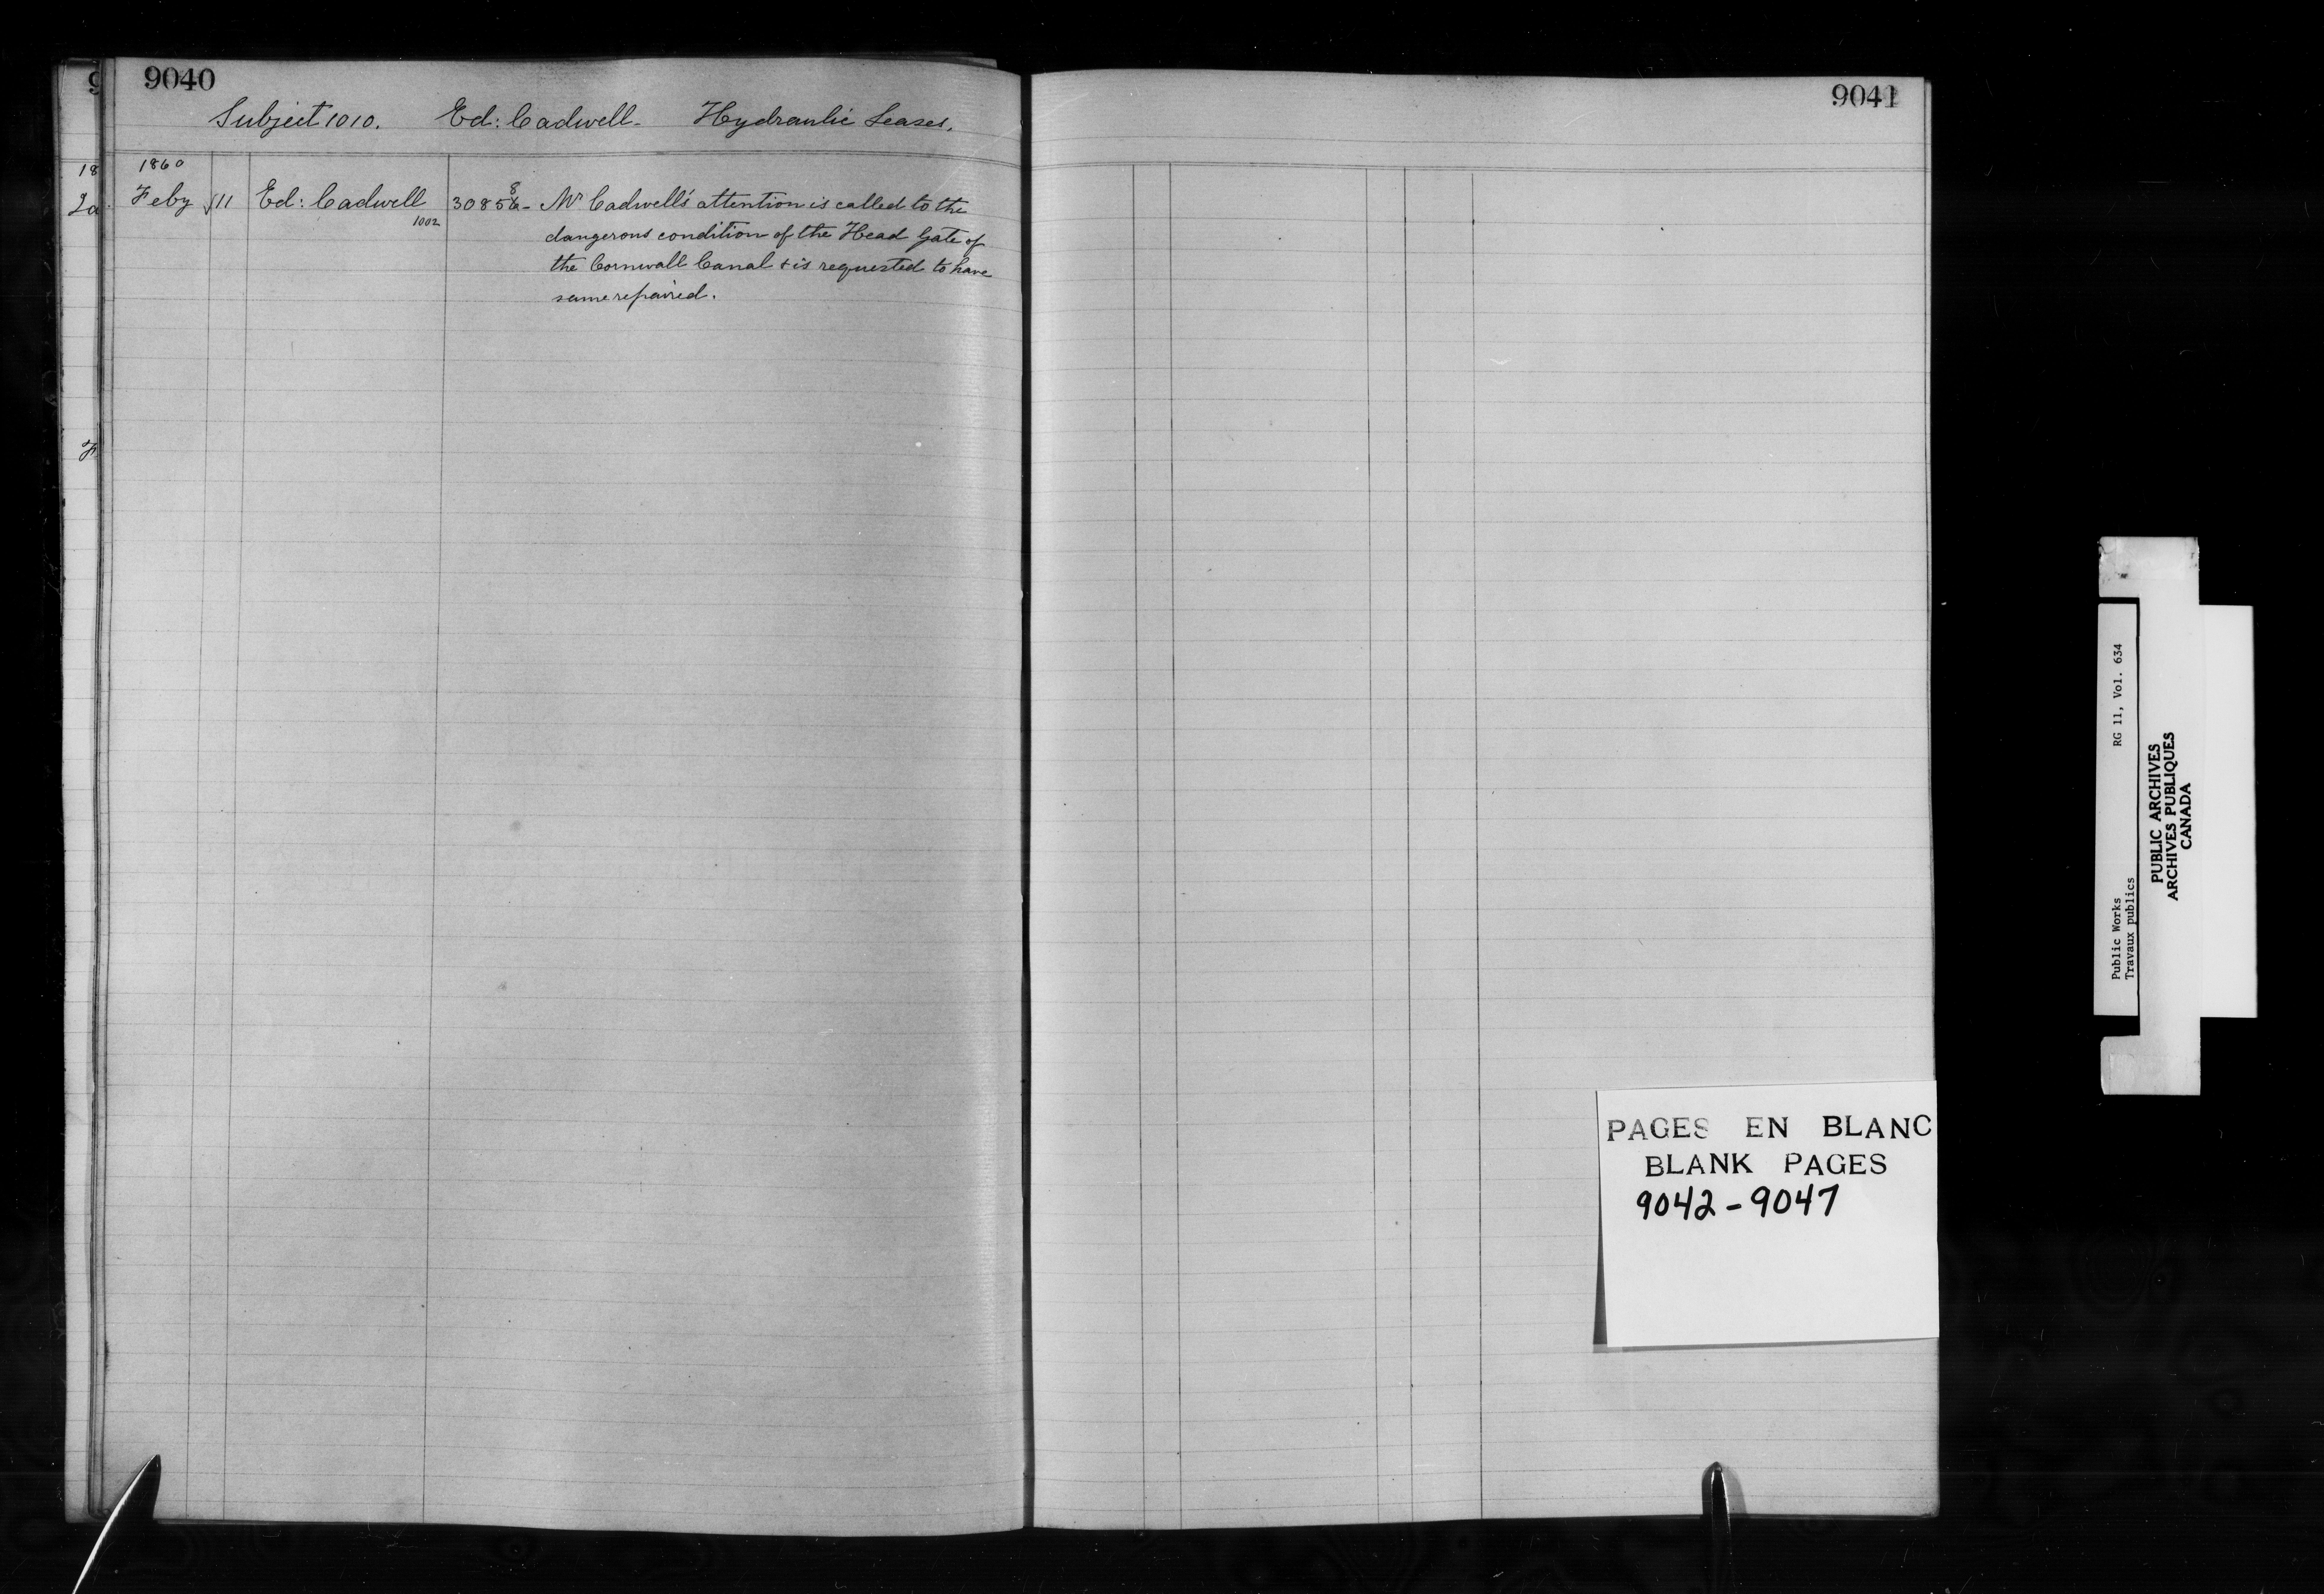 9040
Subject 1010. Ed: Cadwell - Hydraulic Leases.
1860
Feby 11 Ed: Cadwell 30858 - Mr Cadwell's attention is called to the
1002
dangerous condition of the Head Gate of
the Cornwall Canal & is requested to have
same repaired.
9041
PAGES EN BLANC
BLANK PAGES
9042-9047
Public Works RG 11, Vol. 634
Travaux publics
PUBLIC ARCHIVES
ARCHIVES PUBLIQUES
CANADA